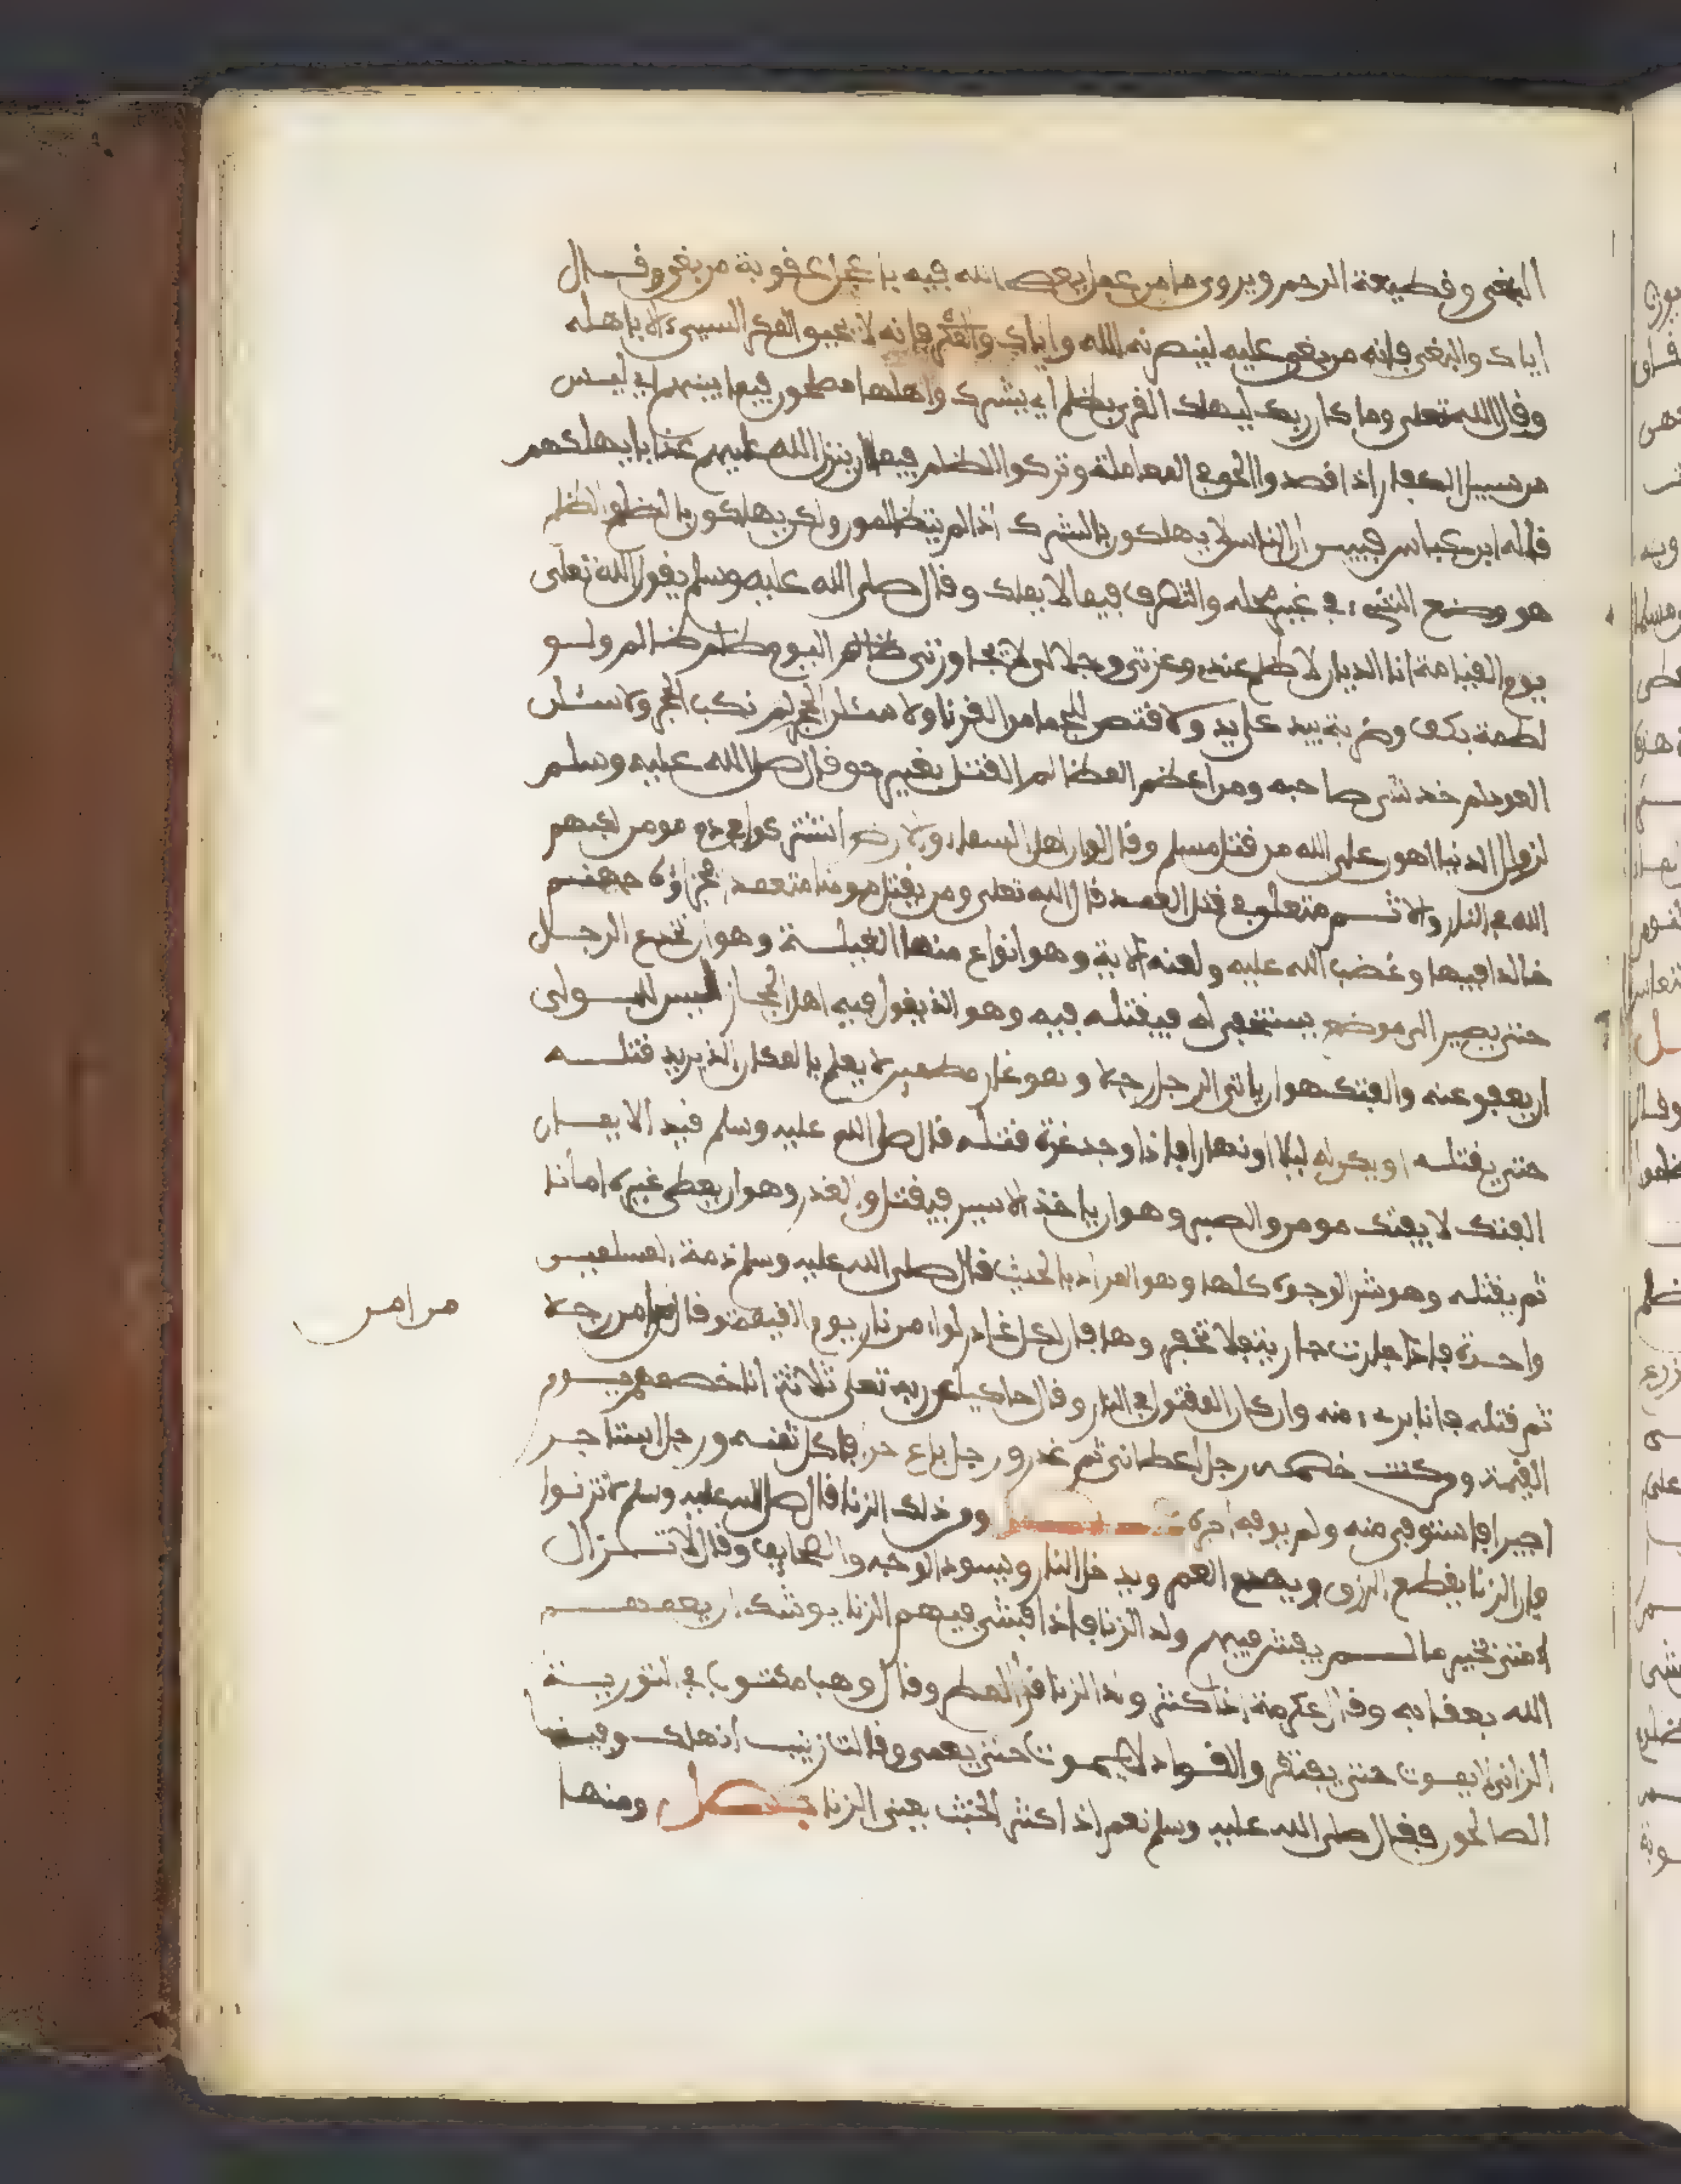 البغي وقطيعة الرحم ويروى ما من عمل يعصى الله فيه باعجل عقوبة من بغي وقال
اياك والبغي فإنه من بغي عليه لينصرنه الله واياك والمكر فإنه لا يحيق المكر السيىء الا باهله
وقال الله تعلى وما كان ربك ليهلك القرى بظلم اي بشرك واهلها مصلحون فيما بينهم اي ليس
من سبيل الكفار اذا قصدوا الحق في المعاملة وتركوا الظلم فيها ان ينزل الله عليهم عذابا يهلكهم
قاله ابن عباس فبين ان الناس لا يهلكون بالشرك اذا لم يتظالموا ولكن يهلكون بالظلم والظلم
هو وضع الشيء في غير محله والتصرف فيما لا يملك وقال صلى الله عليه وسلم يقول الله تعلى
يوم القيامة انا الديان لا ظلم عندي وعزتي وجلالي لا يجاوزني اليوم ظلم ظالم ولو
لطمة بكف وضربة بيد على يد ولاقتصن للجما من القرنا ولا سئلن الحجر لم نكب الحجر ولا سئلن
العود لم خدش صاحبه ومن اعظم المظالم القتل بغير حق قال صلى الله عليه وسلم
لزوال الدنيا اهون على الله من قتل مسلم وقال لو ان اهل السماء والارض اشتركوا في دم مومن لكبهم
الله في النار والاثم متعلق في قتل العمد قال الله تعلى ومن يقتل مومنا متعمدا فجزاؤه جهنم
خالدا فيها وغضب الله عليه ولعنه الاية وهو انواع منها الغيلة وهو ان تخدع الرجل
حتى يصير الى موضع يستخفي له فيقتله فيه وهو الذي يقول فيه اهل الحجاز ليس للولي
ان يعفو عنه والفتك هو ان ياتي الرجل رجلا وهو غار مطمين لا يعلم بالمكان الذي يريد قتله
حتى يقتله او يكمن له ليلا او نهارا فإذا وجد غرة قتله قال صلى الله عليه وسلم قيد الايمان
الفتك لا يفتك مومن والصبر وهو ان ياخذ الاسير فيقتل والغدر وهو ان يعطي غيره امانا
ثم يقتله وهو شر الوجوه كلها وهو المراد بالحديث قال صلى الله عليه وسلم ذمة المسلمين
واحدة فإذا جارت جارية فلا تخفر وها فإن لكل غادر لواء من نار يوم القيمة وقال من امن رجلا
ثم قتله فانا بريء منه وان كان المقتول في النار وقال حاكيا عن ربه تعلى ثلاثة انا خصمهم يوم
القيمة ومن كنت خصمه رجل اعطاني ثم غدر ورجل باع حرا فاكل ثمنه ورجل استاجر
اجيرا فاستوفى منه ولم يوفه اجره ومن ذلك الزنا قال صلى الله عليه وسلم لا تزنوا
فإن الزنا يقطع الرزق ويمحق العمر ويدخل النار ويسود الوجه والصحايف وقال لا تزال
امتي بخير ما لم يفش فيهم ولد الزنا فإذا فشى فيهم الزنا يوشك ان يعمهم
الله بعقابه وقال عكرمة اذا كثر ولد الزنا قل المطر وقال وهب مكتوب في التورية
الزاني لا يموت حتى يفتقر والقواد لا يموت حتى يعمى وقالت زينب انهلك وفينا
الصالحون فقال صلى الله عليه وسلم نعم اذا كثر الخبث يعني الزنا فصل ومنها
من امن